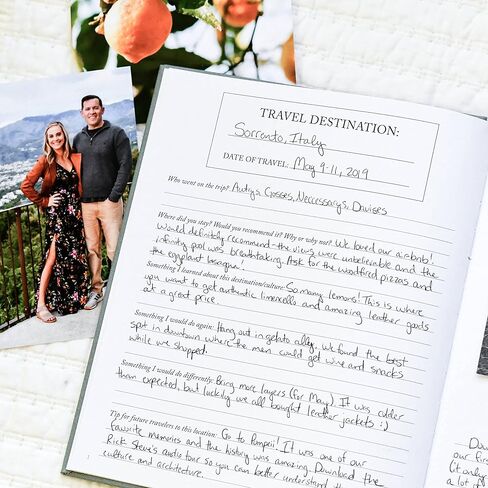 TRAVEL DESTINATION:
Sorrento, Italy
DATE OF TRAVEL: May 9-11, 2019
Who went on the trip? Autrys, Cosses, Neccessarys, Davises
Where did you stay? Would you recommend it? Why or why not? We loved our airbnb!
Would definitely recommend - the views were unbelievable and the
infinity pool was breathtaking. Ask for the woodfired pizzas and
the eggplant lasagna!
Something I learned about this destination/culture: So many lemons! This is where
you want to get authentic limencello and amazing leather goods
at a great price.
Something I would do again: Hang out in gelato alley. We found the best
spot in downtown where the men could get wine and snacks
while we shopped.
Something I would do differently: Bring more layers (for May). It was colder
than expected, but luckily we all bought leather jackets :)
Tip for future travelers to this location: Go to Pompeii! It was one of our
favorite memories and the history was amazing. Download the
Rick Steve's audio tour so you can better understand the
culture and architecture.
1
Dow
our fir
(it
a lot